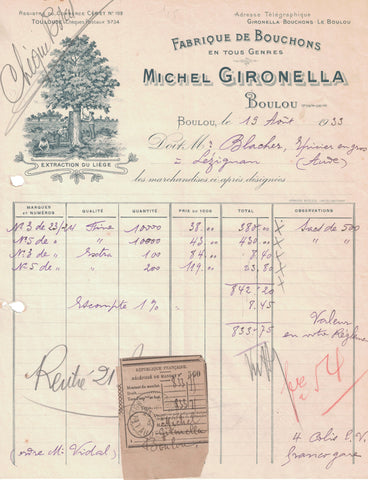 Registre du Commerce Céret N° 198
Toulouse (Chèques Postaux) 5734
Adresse Télégraphique
Gironella Bouchons - Le Boulou
Chèque
Fabrique de Bouchons
en tous Genres
Michel Gironella
Boulou
Boulou, le 15 Août 1933
Doit M. Blacher, Épicier en gros
à Lézignan (Aude)
les marchandises ci-après désignées
Extraction du Liège
MARQUES et NUMÉROS QUALITÉ QUANTITÉ PRIX DU 1000 TOTAL OBSERVATIONS
N° 3 de 23/24 10000 38.00 380.00 Sac de 500
N° 5 de " " 10000 43.00 430.00 " "
N° 3 de " Extra 100 84.00 8.40
N° 5 de " " 200 119.00 23.80
842-20
Escompte 1% 8.45
833-75
Valeur
en votre Règlement
54
Rentré 21
RÉPUBLIQUE FRANÇAISE
RÉCÉPISSÉ DE MANDAT
833
Michel
Gironella
Boulou
(ordre M. Vidal)
4 Colis P.V.
franco gare